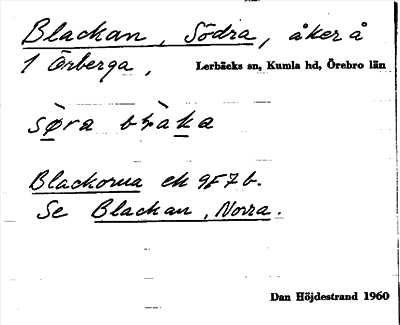 Blackan, Södra, åker å
1 Örberga, Lerbäcks sn, Kumla hd, Örebro län
Blackorna ek 9F7b.
Se Blackan, Norra.
Dan Höjdestrand 1960